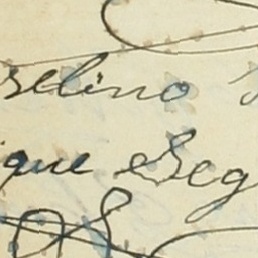 relino
que Seg